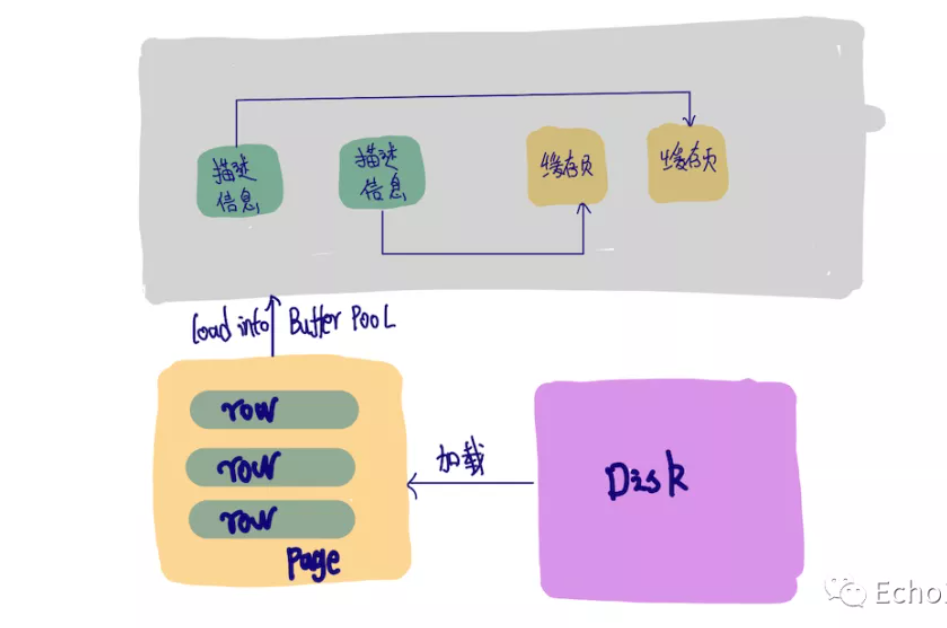 描述
信息
描述
信息
缓存页
缓存页
load into Buffer Pool
row
row
row
Page
加载
Disk